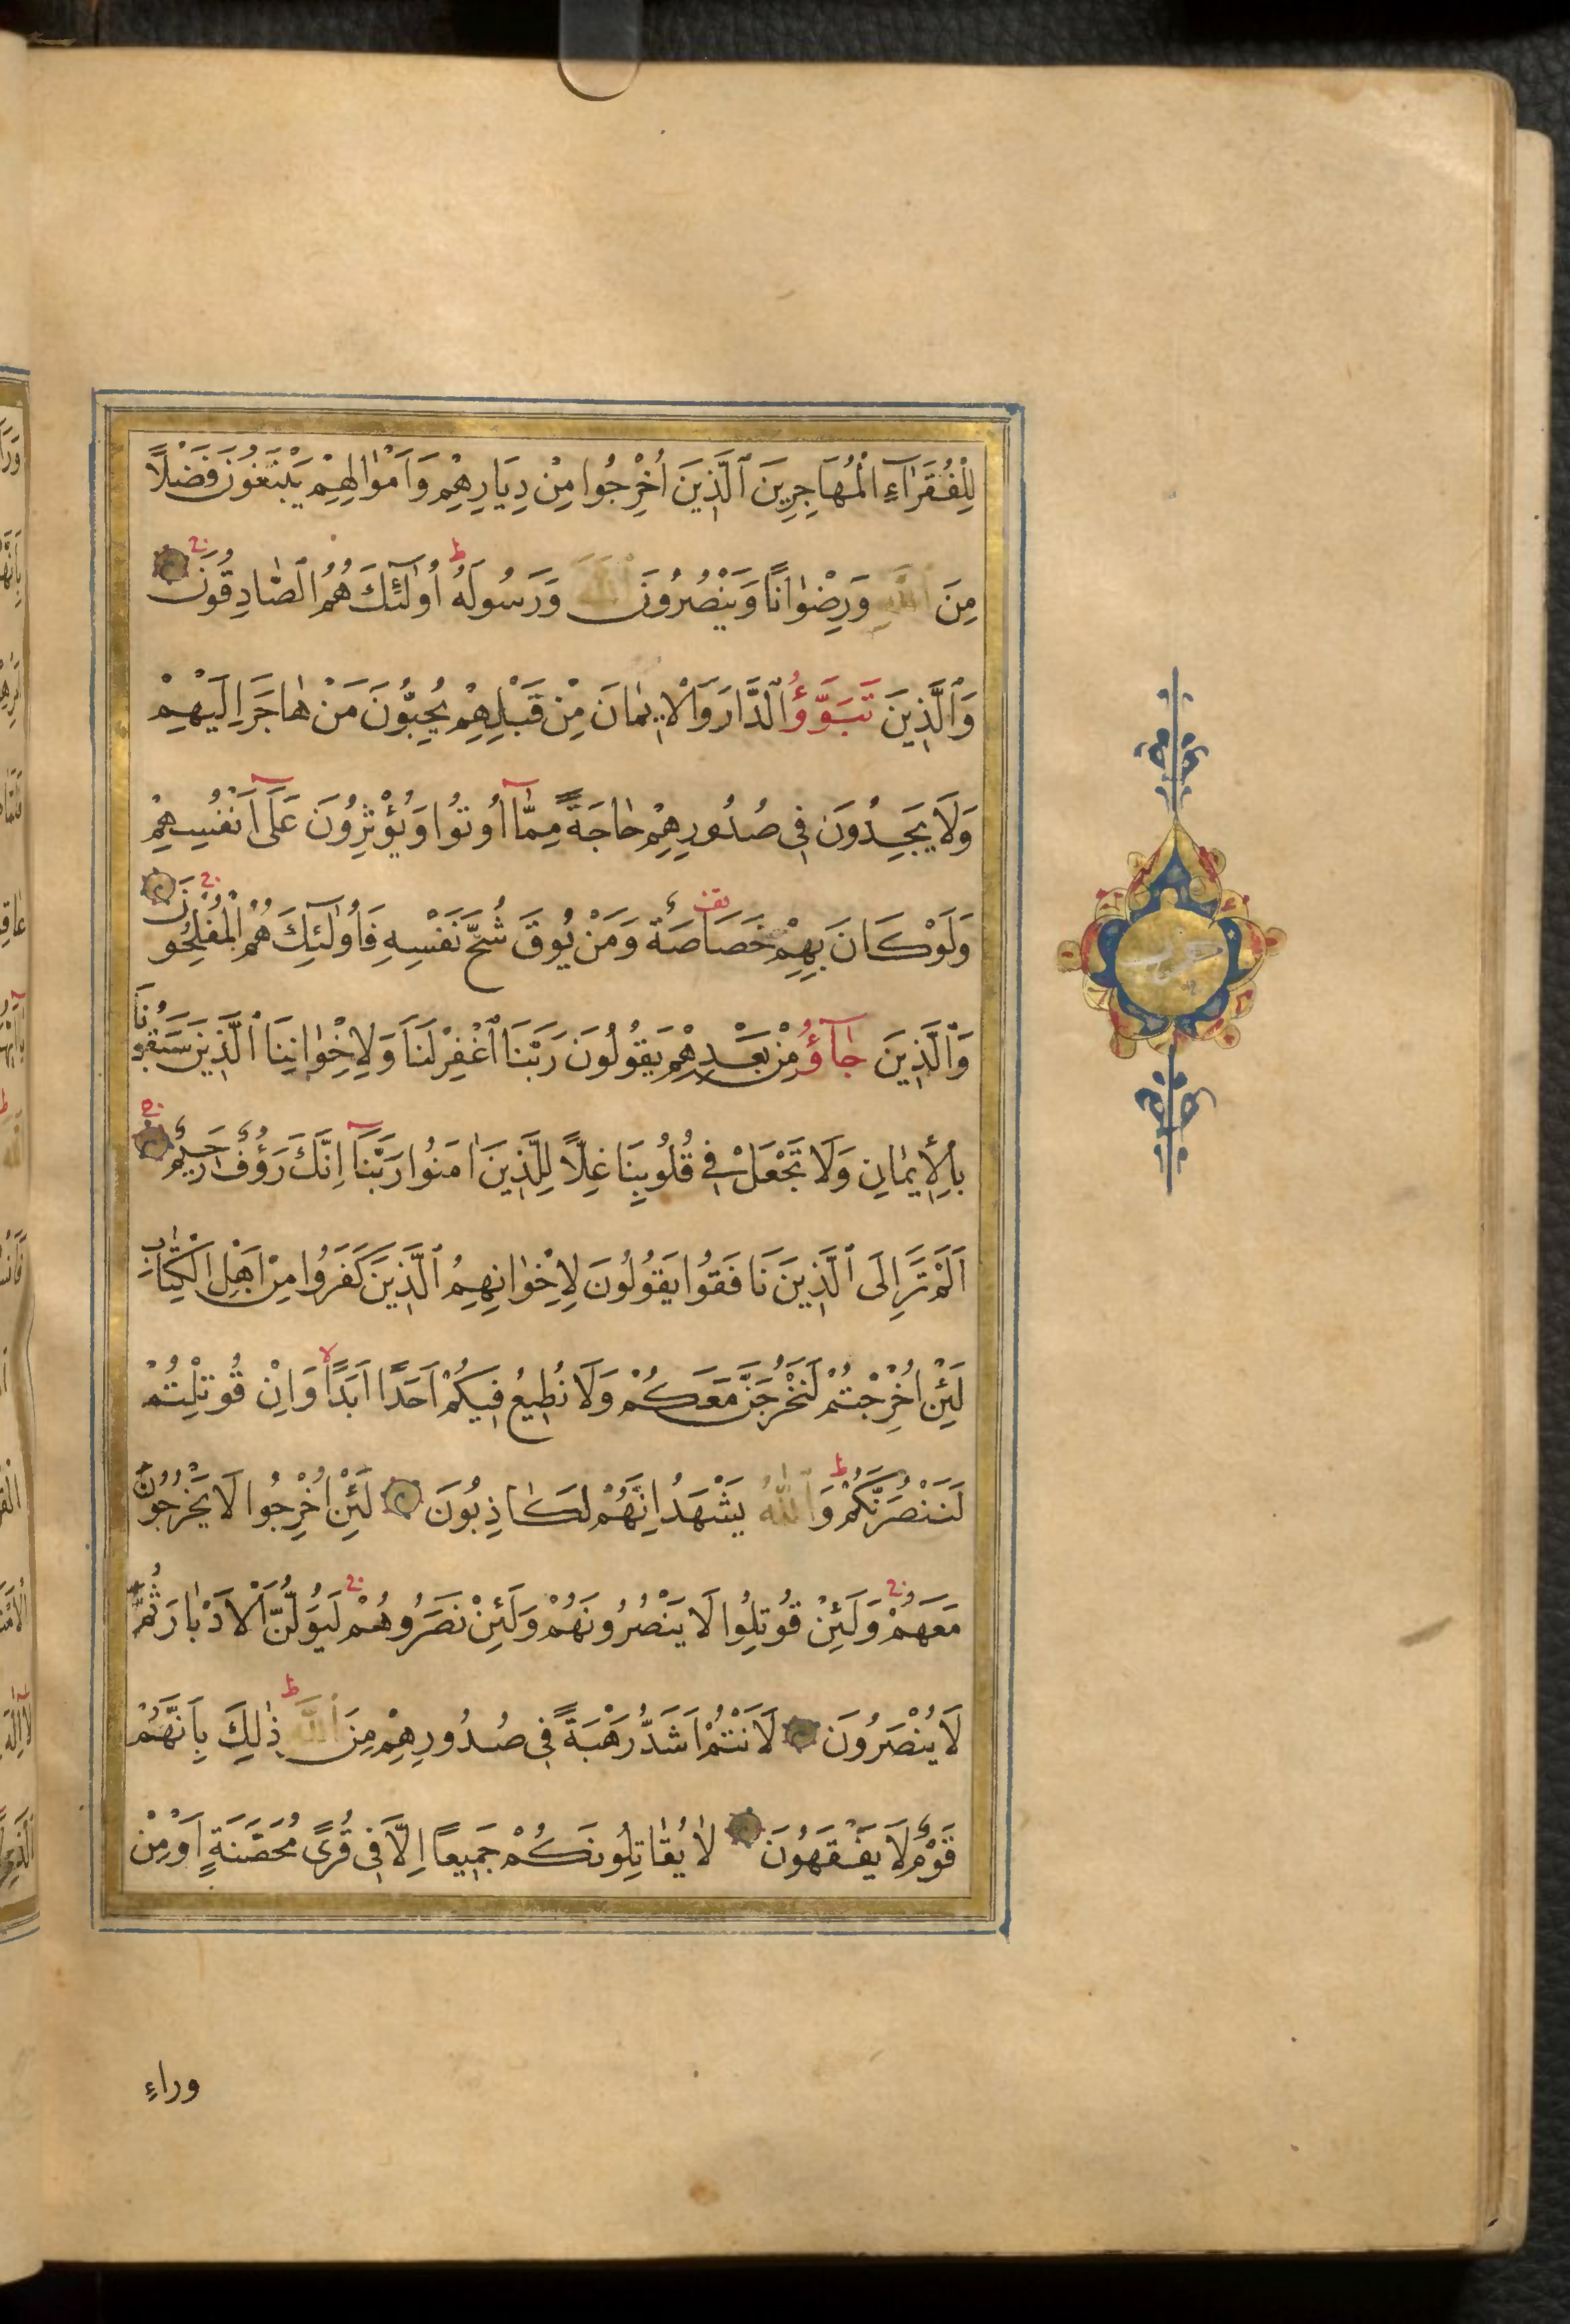 لِلْفُقَرَآءِ الْمُهَاجِرِينَ ٱلَّذِينَ اُخْرِجُوا مِنْ دِيَارِهِمْ وَاَمْوٰالِهِمْ يَبْتَغُونَ فَضْلًا
مِنَ ٱللّٰهِ وَرِضْوٰانًا وَيَنْصُرُونَ ٱللّٰهَ وَرَسُولَهُ ط اُولٰٓئِكَ هُمُ ٱلصّٰادِقُونَ
وَٱلَّذِينَ تَبَوَّؤُ ٱلدَّارَ وَالْاِيمٰانَ مِنْ قَبْلِهِمْ يُحِبُّونَ مَنْ هٰاجَرَ اِلَيْهِمْ
وَلَا يَجِدُونَ فِى صُدُورِهِمْ حٰاجَةً مِمّٰآ اُوتُوا وَيُؤْثِرُونَ عَلَىٓ اَنْفُسِهِمْ
وَلَوْ كَانَ بِهِمْ خَصَاصَةٌ وَمَنْ يُوقَ شُحَّ نَفْسِهِ فَاُولٰٓئِكَ هُمُ الْمُفْلِحُونَ
وَٱلَّذِينَ جٰآؤُ مِنْ بَعْدِهِمْ يَقُولُونَ رَبَّنَا ٱغْفِرْ لَنَا وَلِاِخْوٰانِنَا ٱلَّذِينَ سَبَقُونَا
بِالْاِيمٰانِ وَلَا تَجْعَلْ فِى قُلُوبِنَا غِلًّا لِلَّذِينَ اٰمَنُوا رَبَّنَآ اِنَّكَ رَؤُفٌ رَحِيمٌ
اَلَمْ تَرَ اِلَى ٱلَّذِينَ نَافَقُوا يَقُولُونَ لِاِخْوٰانِهِمُ ٱلَّذِينَ كَفَرُوا مِنْ اَهْلِ الْكِتٰابِ
لَئِنْ اُخْرِجْتُمْ لَنَخْرُجَنَّ مَعَكُمْ وَلَا نُطِيعُ فِيكُمْ اَحَدًا اَبَدًا لا وَاِنْ قُوتِلْتُمْ
لَنَنْصُرَنَّكُمْ ط وَٱللّٰهُ يَشْهَدُ اِنَّهُمْ لَكٰاذِبُونَ لَئِنْ اُخْرِجُوا لَا يَخْرُجُونَ
مَعَهُمْ وَلَئِنْ قُوتِلُوا لَا يَنْصُرُونَهُمْ وَلَئِنْ نَصَرُوهُمْ لَيُوَلُّنَّ الْاَدْبٰارَ ثُمَّ
لَا يُنْصَرُونَ لَاَنْتُمْ اَشَدُّ رَهْبَةً فِى صُدُورِهِمْ مِنَ ٱللّٰهِ ط ذٰلِكَ بِاَنَّهُمْ
قَوْمٌ لَا يَفْقَهُونَ لَا يُقٰاتِلُونَكُمْ جَمِيعًا اِلَّا فِى قُرًى مُحَصَّنَةٍ اَوْ مِنْ
وراءِ